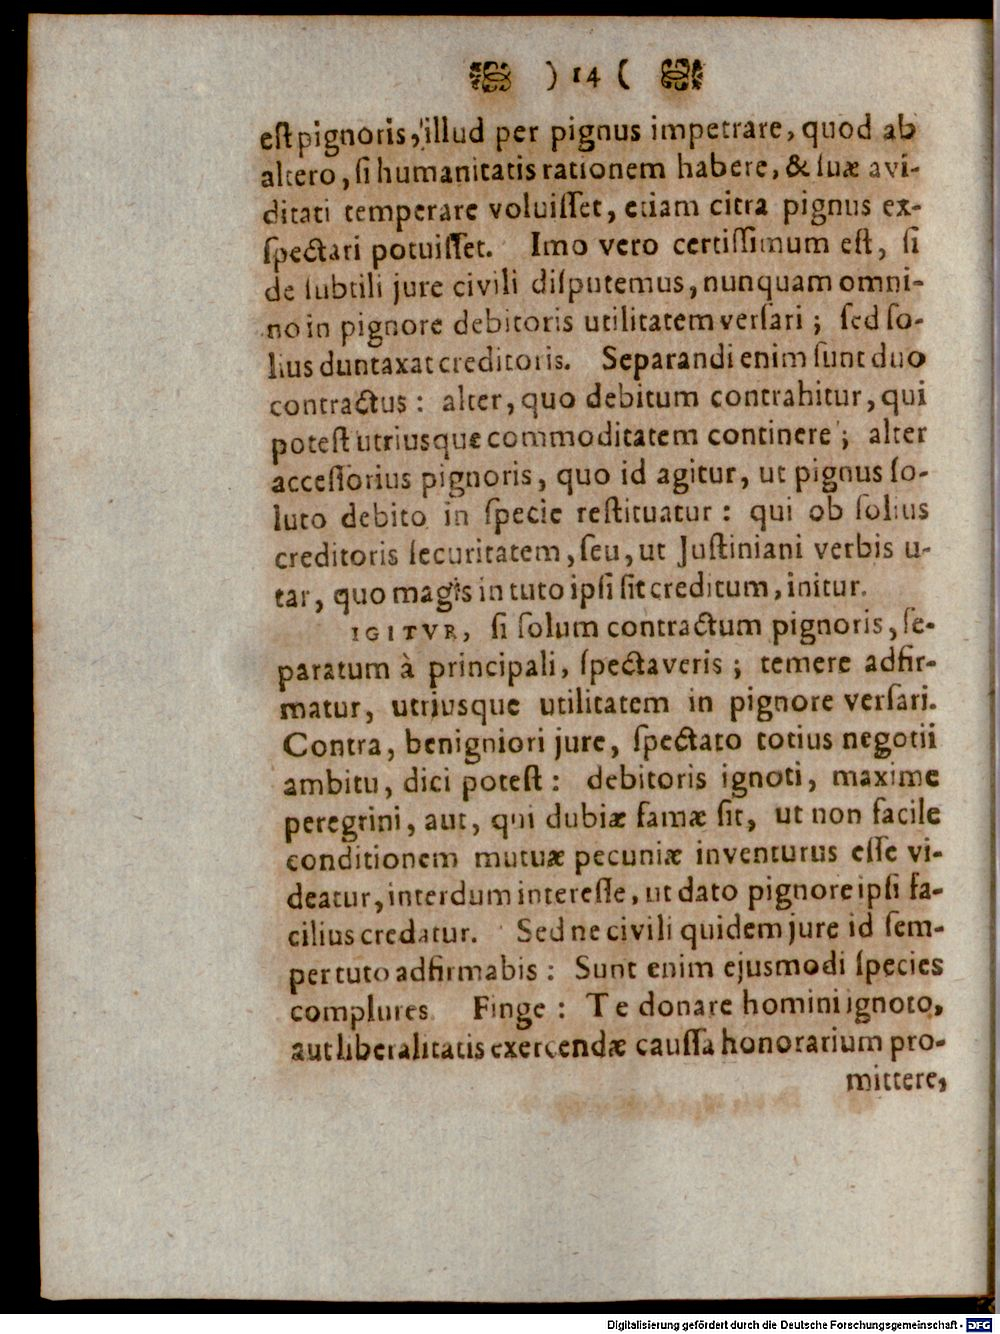 ) 14 (
eſt pignoris, illud per pignus impetrare, quod ab
altero, ſi humanitatis rationem habere, & ſuæ avi-
ditati temperare voluiſſet, etiam citra pignus ex-
ſpectari potuiſſet. Imo vero certiſſimum eſt, ſi
de ſubtili jure civili diſputemus, nunquam omni-
no in pignore debitoris utilitatem verſari; ſed ſo-
lius duntaxat creditoris. Separandi enim ſunt duo
contractus: alter, quo debitum contrahitur, qui
poteſt utriusque commoditatem continere; alter
acceſſorius pignoris, quo id agitur, ut pignus ſo-
luto debito in ſpecie reſtituatur: qui ob ſolius
creditoris ſecuritatem, ſeu, ut Juſtiniani verbis u-
tar, quo magis in tuto ipſi ſit creditum, initur.
IGITVR, ſi ſolum contractum pignoris, ſe-
paratum à principali, ſpectaveris; temere adfir-
matur, utriusque utilitatem in pignore verſari.
Contra, benigniori jure, ſpectato totius negotii
ambitu, dici poteſt: debitoris ignoti, maxime
peregrini, aut, qui dubiæ famæ ſit, ut non facile
conditionem mutuæ pecuniæ inventurus eſſe vi-
deatur, interdum intereſſe, ut dato pignore ipſi fa-
cilius credatur. Sed ne civili quidem jure id ſem-
per tuto adfirmabis: Sunt enim ejusmodi ſpecies
complures. Finge: Te donare homini ignoto,
aut liberalitatis exercendæ cauſſa honorarium pro-
mittere,
Digitalisierung gefördert durch die Deutsche Forschungsgemeinschaft - DFG